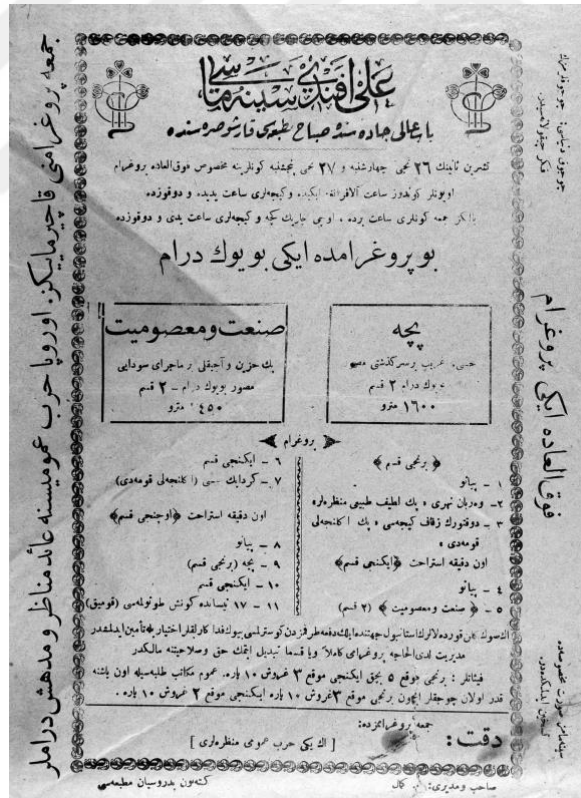 علی افندی سینه ماسی
باب عالی جاده سنده صباح مطبعه سی قارشوسنده
تشرین ثانینك ٢٦ نجی چهارشنبه و ٢٧ نجی پنجشنبه كونلرینه مخصوص فوق العاده پروغرام
اویونلر كوندوز ساعت آلافرانغه ایكیده و كیجه لری ساعت یدیده و دوقوزده
یالكز جمعه كونلری ساعت برده ، و كیجه لری ساعت یدی و دوقوزده
بو پروغرامده ایكی بویوك درام
پچه
غریب برسر كذشتی
درام ٢ قسم
١٦٠٠ مترو
صنعت و معصومیت
پك حزین و آجیقلی بر ماجرای سودایی
مصور بویوك درام - ٢ قسم
١٤٥٠ مترو
پروغرام
﴿ برنجی قسم ﴾
١ - پیانو
٢ - نهری ، پك لطیف طبیعی منظره لر،
٣ - دوقتورك زفاف كیجه سی ، پك اكلنجه لی
قومه دی ،
اون دقیقه استراحت ﴿ایكنجی قسم﴾
٤ - پیانو
٥ - ﴿ صنعت و معصومیت ﴾ (٢ قسم)
٦ - ایكنجی قسم
٧ - (اكلنجه لی قومه دی)
اون دقیقه استراحت ﴿اوچنجی قسم﴾
٨ - پیانو
٩ - پچه (برنجی قسم)
١٠ - ایكنجی قسم
١١ - ١٧ نیسانده كونش طوتولمه سی (قومیق)
مدیریت لدی الحاجه پروغرامی كاملاً ویا قسما تبدیل ایتمك حق و صلاحیتنه مالكدر
فیئاتلر : برنجی موقع ٥ بچق ایكنجی موقع ٣ غروش ١٠ پاره. عموم مكاتب طلبه سیله اون یاشنه
قدر اولان چوجقلر ایچون برنجی موقع ٣ غروش ١٠ پاره ایكنجی موقع ٢ غروش ١٠ پاره .
دقت :
جمعه پروغرامزده :
[ اك یكی حرب عمومی منظره لری ]
صاحب و مدیری : كمال
كتئون بدروسیان مطبعه سی
جمعه پروغرامنی قاچیرماییكز. اوروپا حرب عمومیسنه عائد مناظر و مدهش درام‌لر
فوق العاده ایكی پروغرام